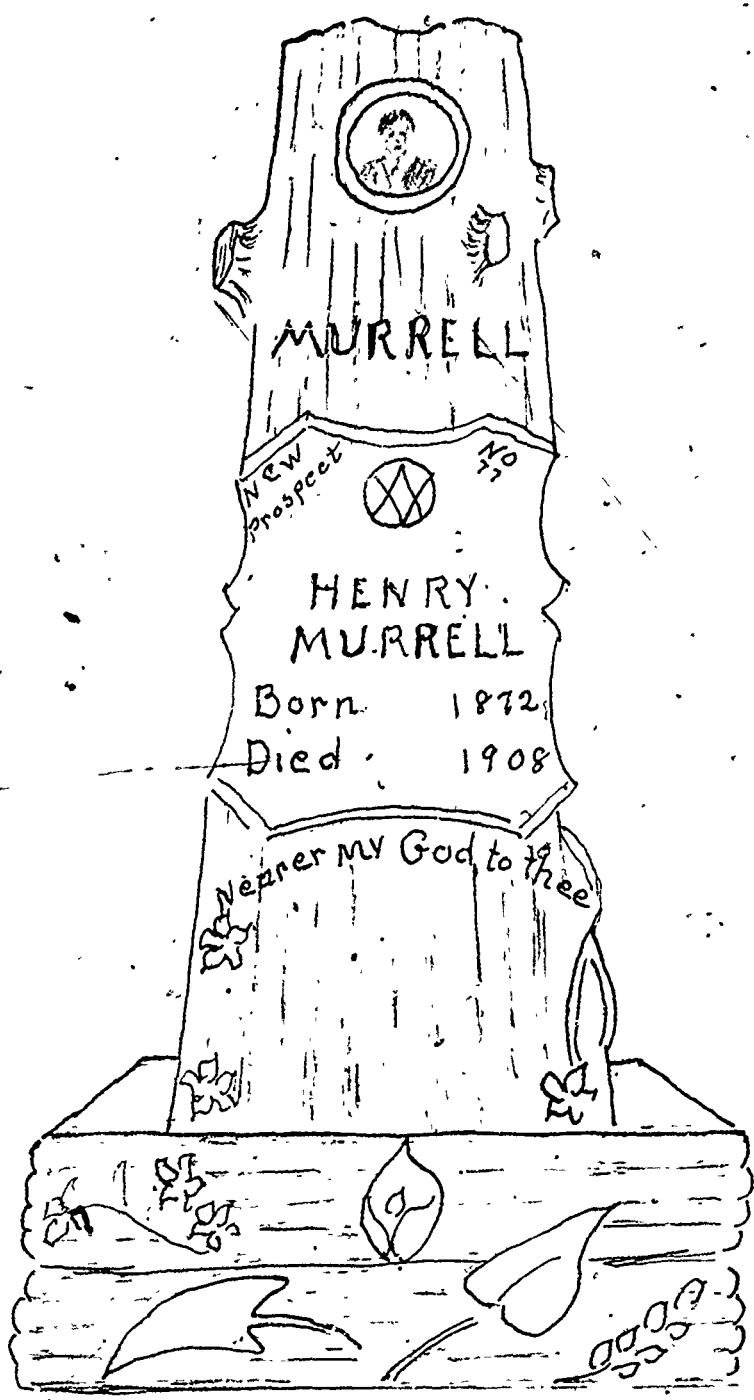 MURRELL
New
Prospect
NO
77
HENRY
MURRELL
Born 1872
Died 1908
Nearer MY God to thee